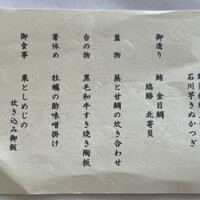 石川芋きぬかつぎ
御造り
鮪 金目鯛
縞鯵 北寄貝
蓋物
蕪と甘鯛の炊き合わせ
台の物
黒毛和牛すき焼き陶板
箸休め
牡蠣の酢味噌掛け
御食事
栗としめじの
炊き込み御飯